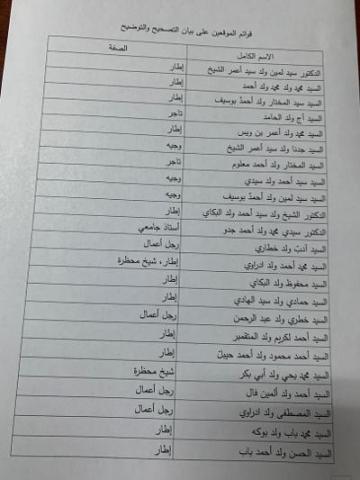 قوائم الموقعين على بيان التصحيح والتوضيح
الاسم الكامل الصفة
الدكتور سيد لمين ولد سيد أعمر الشيخ إطار
السيد محمد ولد محمد ولد أحمد إطار
السيد سيد المختار ولد أحمد بوسيف إطار
السيد أج ولد الحامد تاجر
السيد محمد ولد أعمر بن ويس إطار
السيد جدنا ولد سيد أعمر الشيخ وجيه
السيد المختار ولد أحمد معلوم تاجر
السيد سيد أحمد ولد سيدي وجيه
السيد سيد لمين ولد أحمد بوسيف وجيه
الدكتور الشيخ ولد سيد أحمد ولد البكاي إطار
الدكتور سيدي محمد ولد أحمد جدو أستاذ جامعي
السيد أدب ولد خطاري رجل أعمال
السيد محمد أحمد ولد ادراوي إطار، شيخ محظرة
السيد محفوظ ولد البكاي إطار
السيد حمادي ولد سيد الهادي إطار
السيد خطري ولد عبد الرحمن رجل أعمال
السيد أحمد لكريم ولد المتقمبر إطار
السيد أحمد محمود ولد أحمد حبيبل إطار
السيد محمد يحي ولد أبي بكر شيخ محظرة
السيد أحمد ولد ألمين فال رجل أعمال
السيد المصطفى ولد ادراوي رجل أعمال
السيد محمد باب ولد بوكه إطار
السيد الحسن ولد أحمد باب إطار